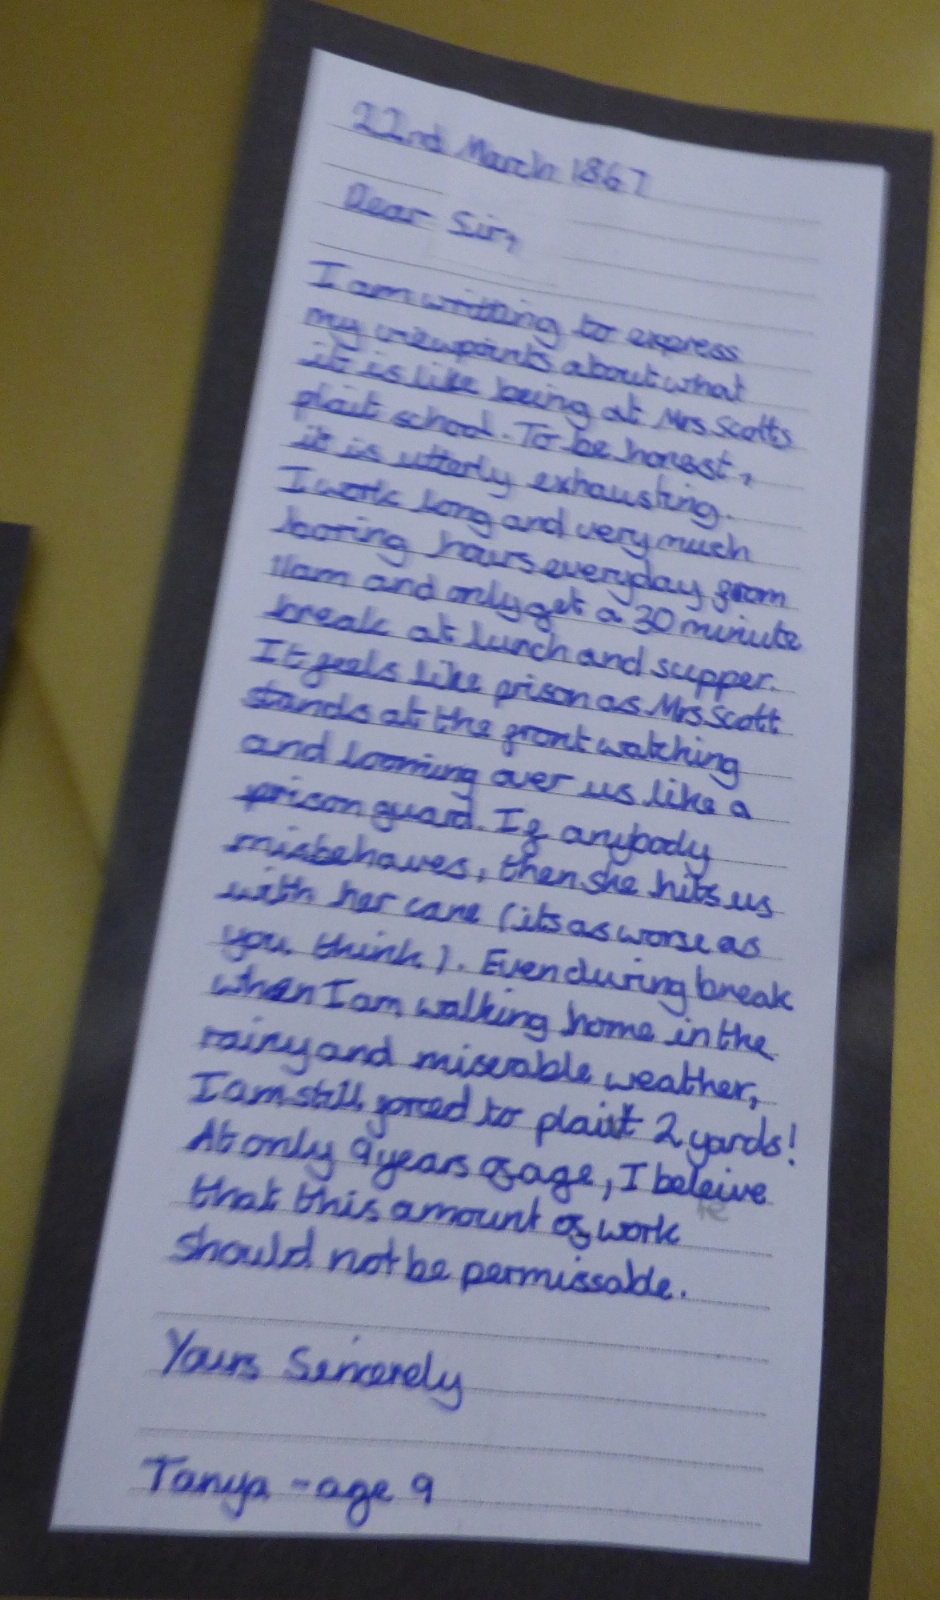 22nd March 1867
Dear Sir,
I am writting to express
my viewpoints about what
it is like being at Mrs Scotts
plait school. To be honest,
it is utterly exhausting.
I work long and very much
boring hours everyday from
11am and only get a 30 miniute
break at lunch and supper.
It feels like prison as Mrs Scott
stands at the front watching
and looming over us like a
prison guard. If anybody
misbehaves, then she hits us
with her cane (its as worse as
you think). Even during break
when I am walking home in the
rainy and miserable weather,
I am still forced to plait 2 yards!
At only 9 years of age, I beleive
ie
that this amount of work
should not be permissable.
Yours Sincerely
Tanya - age 9